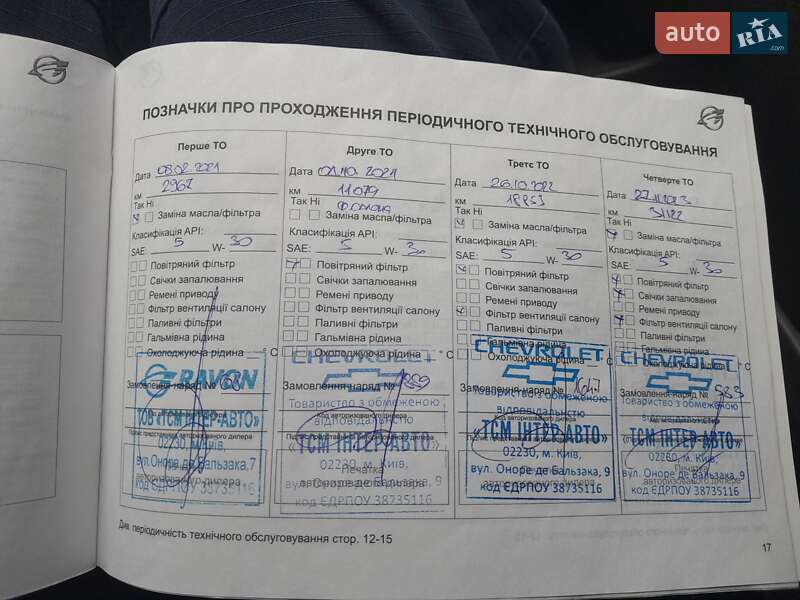 auto RIA.com
ПОЗНАЧКИ ПРО ПРОХОДЖЕННЯ ПЕРІОДИЧНОГО ТЕХНІЧНОГО ОБСЛУГОВУВАННЯ
Перше ТО
Дата 08.02.2021
км 2967
Так Ні
Заміна масла/фільтра
Класифікація API:
SAE: 5 W- 30
Повітряний фільтр
Свічки запалювання
Ремені приводу
Фільтр вентиляції салону
Паливні фільтри
Гальмівна рідина
Охолоджуюча рідина °C
RAVON
Замовлення-наряд №
Код авторизованого дилера
ТОВ «ТСМ ІНТЕР-АВТО»
Підпис представника авторизованого дилера
02230, м. Київ,
вул. Оноре де Бальзака,7
код ЄДРПОУ 38735116
Друге ТО
Дата 2021
км 11079
Так Ні
Заміна масла/фільтра
Класифікація API:
SAE: 5 W- 30
Повітряний фільтр
Свічки запалювання
Ремені приводу
Фільтр вентиляції салону
Паливні фільтри
Гальмівна рідина
Охолоджуюча рідина °C
CHEVROLET
Замовлення-наряд №
Товариство з обмеженою
Код авторизованого дилера
відповідальністю
«ТСМ ІНТЕР-АВТО»
02230, м. Київ,
Печатка
авторизованого дилера
вул. Оноре де Бальзака, 9
код ЄДРПОУ 38735116
Третє ТО
Дата 26.10.2022
км 18953
Так Ні
Заміна масла/фільтра
Класифікація API:
SAE: 5 W- 30
Повітряний фільтр
Свічки запалювання
Ремені приводу
Фільтр вентиляції салону
Паливні фільтри
Гальмівна рідина
Охолоджуюча рідина °C
CHEVROLET
Замовлення-наряд №
Товариство з обмеженою
відповідальністю
«ТСМ ІНТЕР-АВТО»
02230, м. Київ,
вул. Оноре де Бальзака, 9
код ЄДРПОУ 38735116
Четверте ТО
Дата
км 31122
Так Ні
Заміна масла/фільтра
Класифікація API:
SAE: 5 W- 30
Повітряний фільтр
Свічки запалювання
Ремені приводу
Фільтр вентиляції салону
Паливні фільтри
Гальмівна рідина
Охолоджуюча рідина °C
CHEVROLET
Замовлення-наряд № 583
Товариство з обмеженою
відповідальністю
«ТСМ ІНТЕР-АВТО»
02230, м. Київ,
Печатка
авторизованого дилера
вул. Оноре де Бальзака, 9
код ЄДРПОУ 38735116
Див. періодичність технічного обслуговування стор. 12-15
17